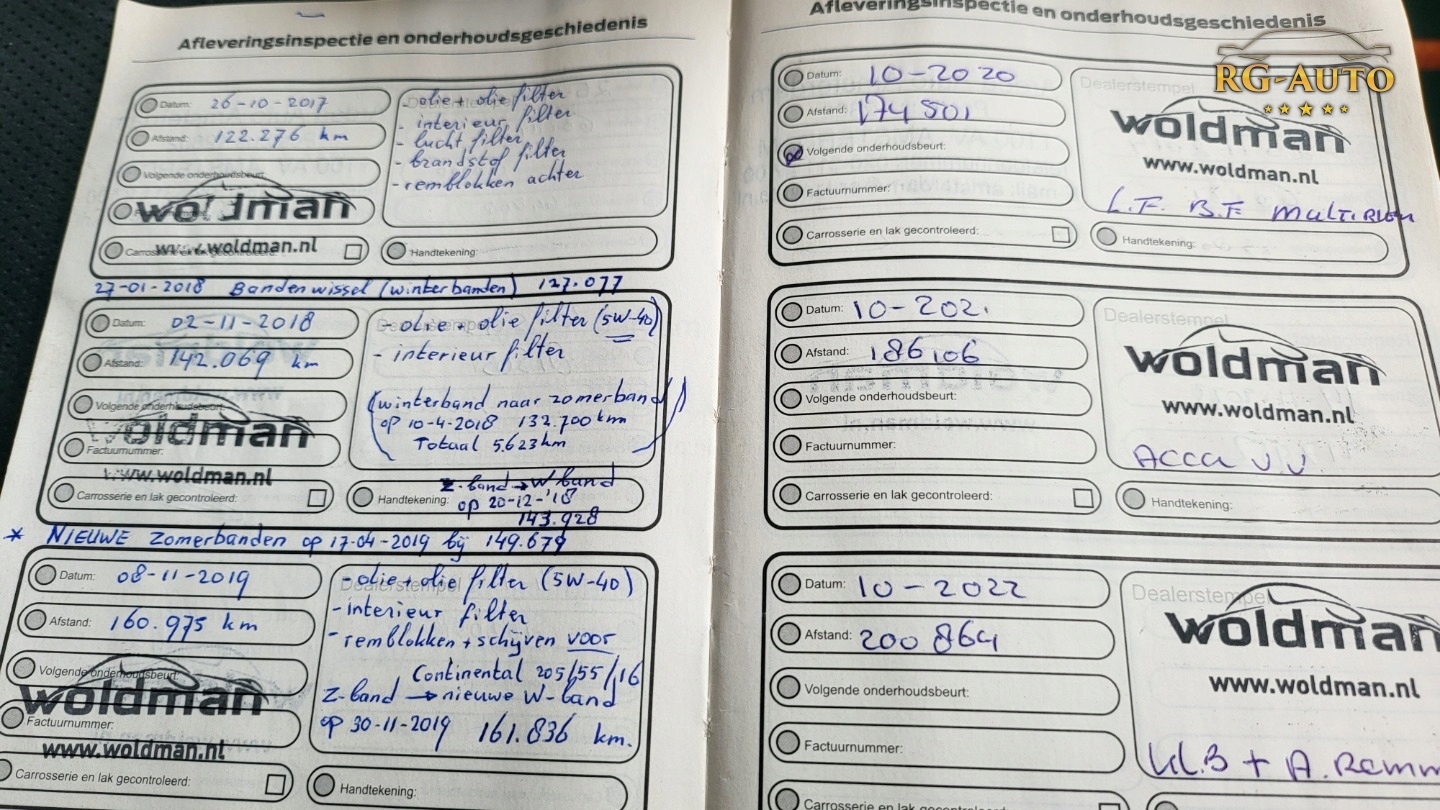 Afleveringsinspectie en onderhoudsgeschiedenis
Datum: 26-10-2017
Afstand: 122.276 km
Volgende onderhoudsbeurt:
woldman
www.woldman.nl
Carrosserie en lak gecontroleerd:
- olie + olie filter
- interieur filter
- lucht filter
- brandstof filter
- remblokken achter
Handtekening:
27-01-2018 Bandenwissel (winterbanden) 127.077
Datum: 02-11-2018
Afstand: 142.069 km
Volgende onderhoudsbeurt:
woldman
Factuurnummer:
www.woldman.nl
Carrosserie en lak gecontroleerd:
- olie + olie filter (5W-40)
- interieur filter
(winterband naar zomerband)
op 10-4-2018 132.700 km
Totaal 5.623 km
Handtekening:
z-band → W-band
op 20-12-'18
143.928
* NIEUWE zomerbanden op 17-04-2019 bij 149.679
Datum: 08-11-2019
Afstand: 160.975 km
Volgende onderhoudsbeurt:
woldman
Factuurnummer:
www.woldman.nl
Carrosserie en lak gecontroleerd:
- olie + olie filter (5W-40)
- interieur filter
- remblokken + schijven voor
Continental 205/55/16
Z-band → nieuwe W-band
op 30-11-2019 161.836 km.
Handtekening:
Afleveringsinspectie en onderhoudsgeschiedenis
RG-AUTO
Datum: 10-2020
Afstand: 174501
Volgende onderhoudsbeurt:
Factuurnummer:
Carrosserie en lak gecontroleerd:
Dealerstempel
woldman
www.woldman.nl
L.F. B.F
Handtekening:
Datum: 10-202.
Afstand: 186106
Volgende onderhoudsbeurt:
Factuurnummer:
Carrosserie en lak gecontroleerd:
Dealerstempel
woldman
www.woldman.nl
Accu
Handtekening:
Datum: 10-2022
Afstand: 200864
Volgende onderhoudsbeurt:
Factuurnummer:
Carrosserie en lak gecontroleerd:
Dealerstempel
woldman
www.woldman.nl
+ A. Remm